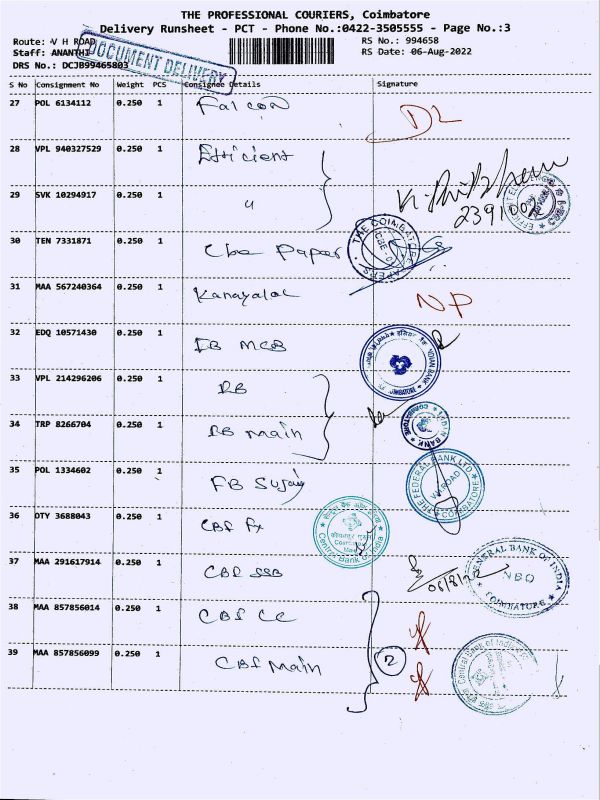 THE PROFESSIONAL COURIERS, Coimbatore
Delivery Runsheet - PCT - Phone No.:0422-3505555 - Page No.:3
Route: V H ROAD
RS No.: 994658
Staff: ANANTHI
RS Date: 06-Aug-2022
DRS No.: DCJB99465803
DOCUMENT DELIVERY
S No Consignment No Weight PCS Consignee Details Signature
27 POL 6134112 0.250 1 Falcon DL
28 VPL 940327529 0.250 1 Efficient
29 SVK 10294917 0.250 1 "
2391002
30 TEN 7331871 0.250 1 Cbe Paper
THE COIMBATORE PAPERS
CBE-
31 MAA 567240364 0.250 1 Kanayalal NP
32 EDQ 10571430 0.250 1 IB MCB
INDIAN BANK
33 VPL 214296206 0.250 1 RB
34 TRP 8266704 0.250 1 IB Main
INDIAN BANK
35 POL 1334602 0.250 1 FB Sujay
THE FEDERAL BANK LTD.
V.H.ROAD
COIMBATORE
36 DTY 3688043 0.250 1 CBI Fx
Central Bank of India
37 MAA 291617914 0.250 1 CBI SSB
06/8/22
CENTRAL BANK OF INDIA
NBO
COIMBATORE
38 MAA 857856014 0.250 1 CBI CC
39 MAA 857856099 0.250 1 CBI Main
2
Central Bank of India